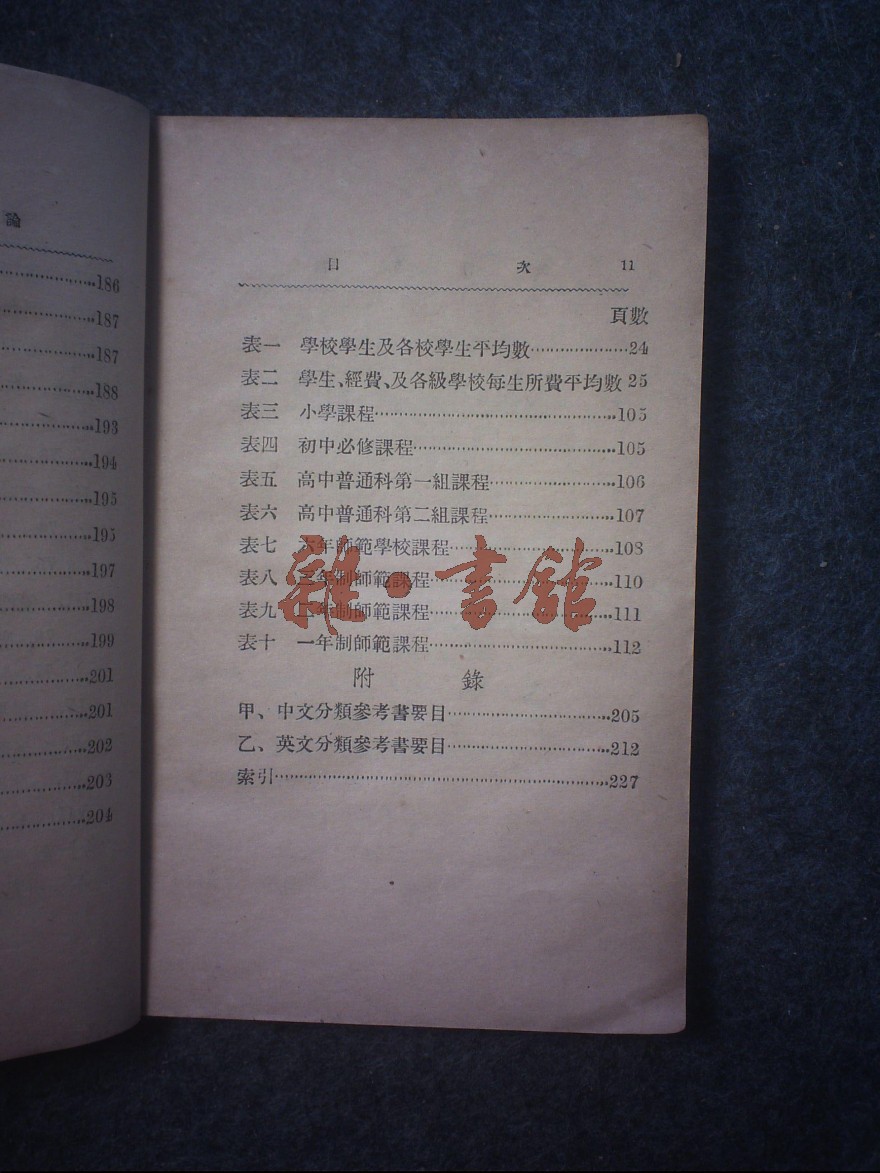 論
186
187
187
188
193
194
195
195
197
198
199
201
201
202
203
204
目 次 11
頁數
表一 學校學生及各校學生平均數………………24
表二 學生、經費、及各級學校每生所費平均數 25
表三 小學課程………………105
表四 初中必修課程………………105
表五 高中普通科第一組課程………………106
表六 高中普通科第二組課程………………107
表七 六年師範學校課程………………108
表八 三年制師範課程………………110
表九 二年制師範課程………………111
表十 一年制師範課程………………112
附 錄
甲、中文分類參考書要目………………205
乙、英文分類參考書要目………………212
索引………………227
雜·書館